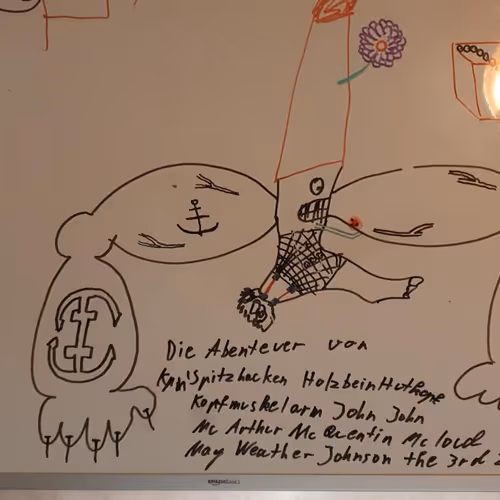 Die Abenteuer von
Käpn'Spitzhacken Holzbein Huthope
Kopfmuskelarm John John
Mc Arthur Mc Quentin Mc loud
May Weather Johnson the 3rd
amazonbasics